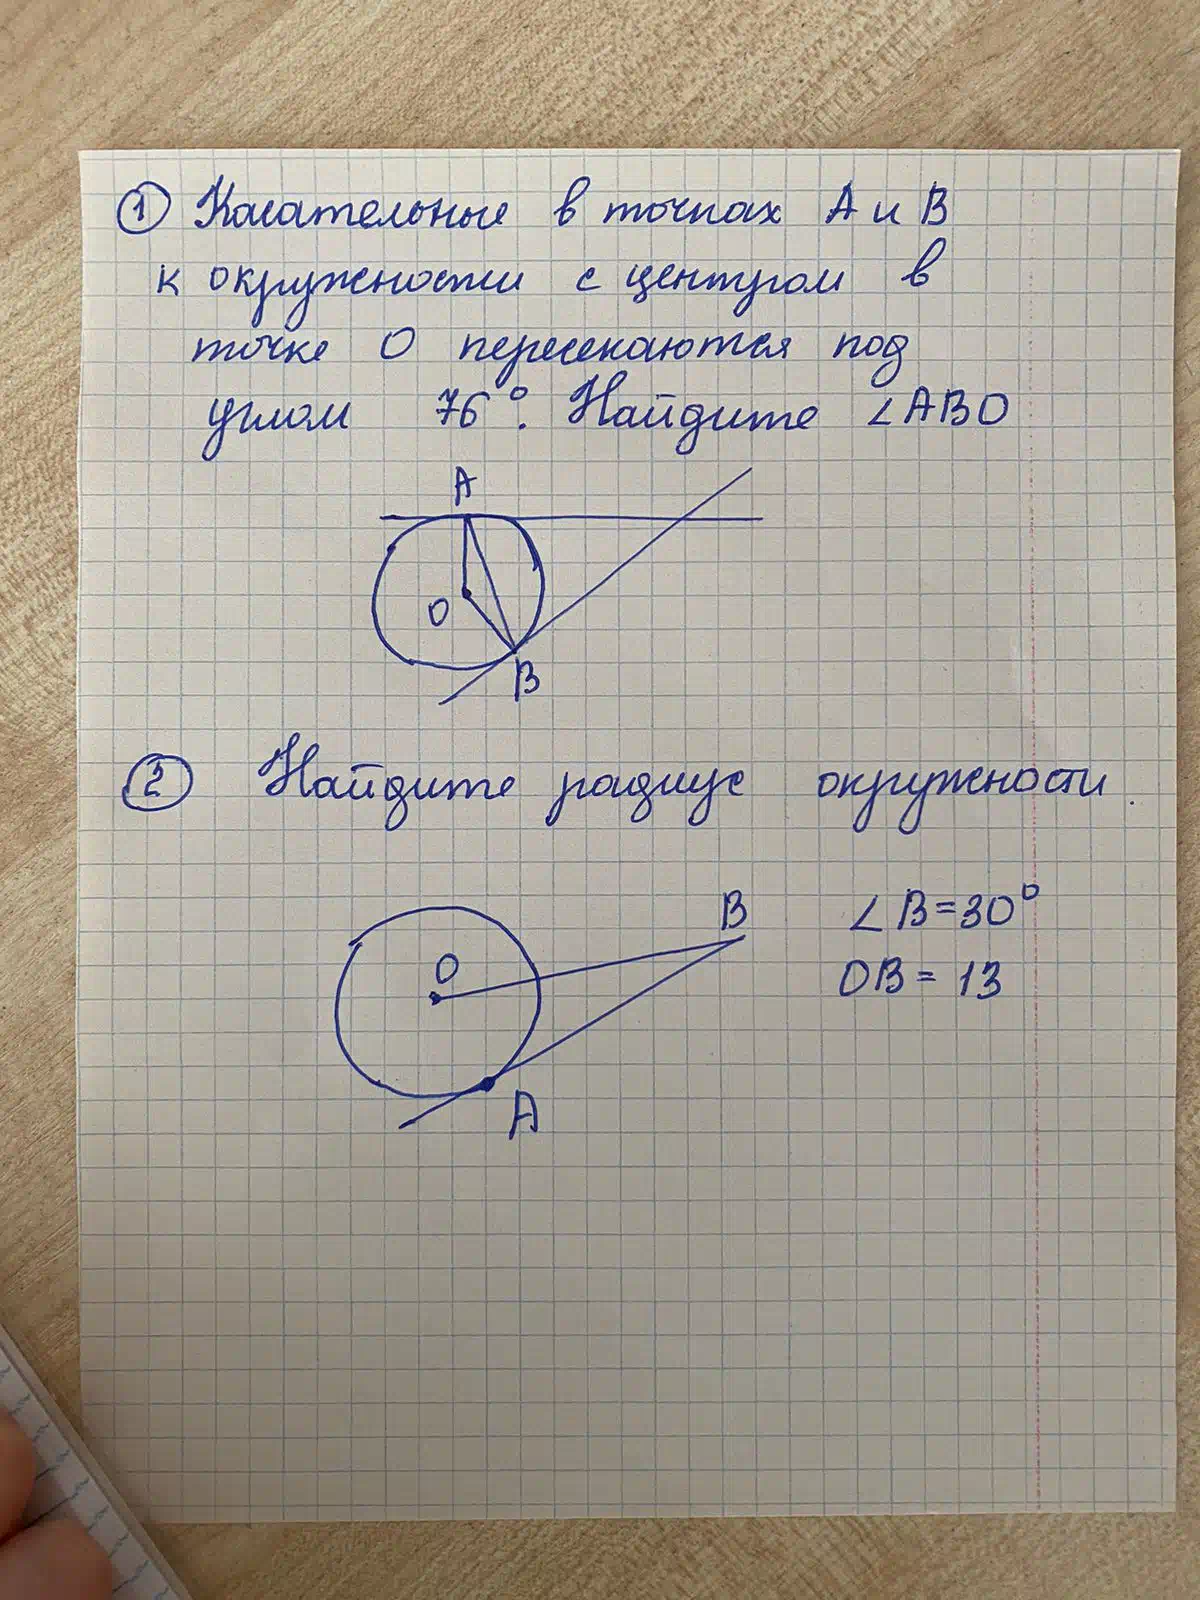 1 Касательные в точках A и B
к окружности с центром в
точке O пересекаются под
углом 76°. Найдите ∠ABO
A
O
B
2 Найдите радиус окружности.
B
∠B=30°
O
OB = 13
A